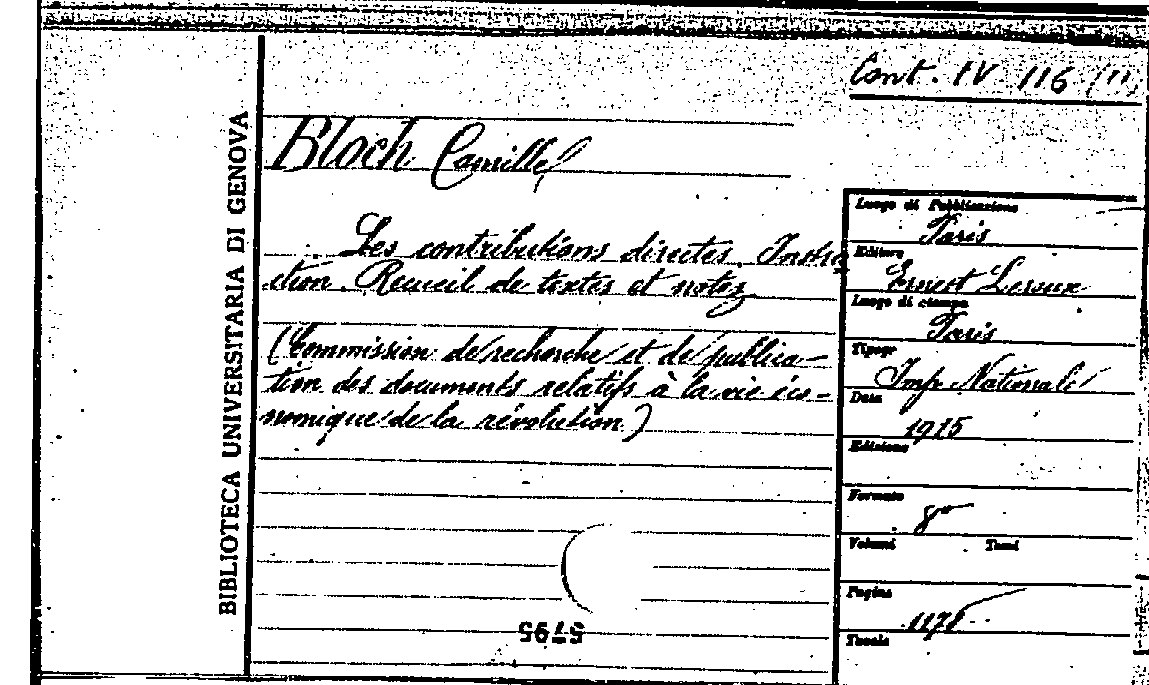 Cont. IV 116 (11)
BIBLIOTECA UNIVERSITARIA DI GENOVA
Bloch Camille
Les contributions directes. Instru
ction. Recueil de textes et notes
(Commission de recherche et de publica-
tion des documents relatifs à la vie éco-
nomique de la révolution)
5795
Luogo di Pubblicazione
Paris
Editore
Ernest Leroux
Luogo di stampa
Paris
Tipogr
Imp. Nationale
Data
1915
Edizione
Formato
8°
Volumi Tomi
Pagine
Tavole